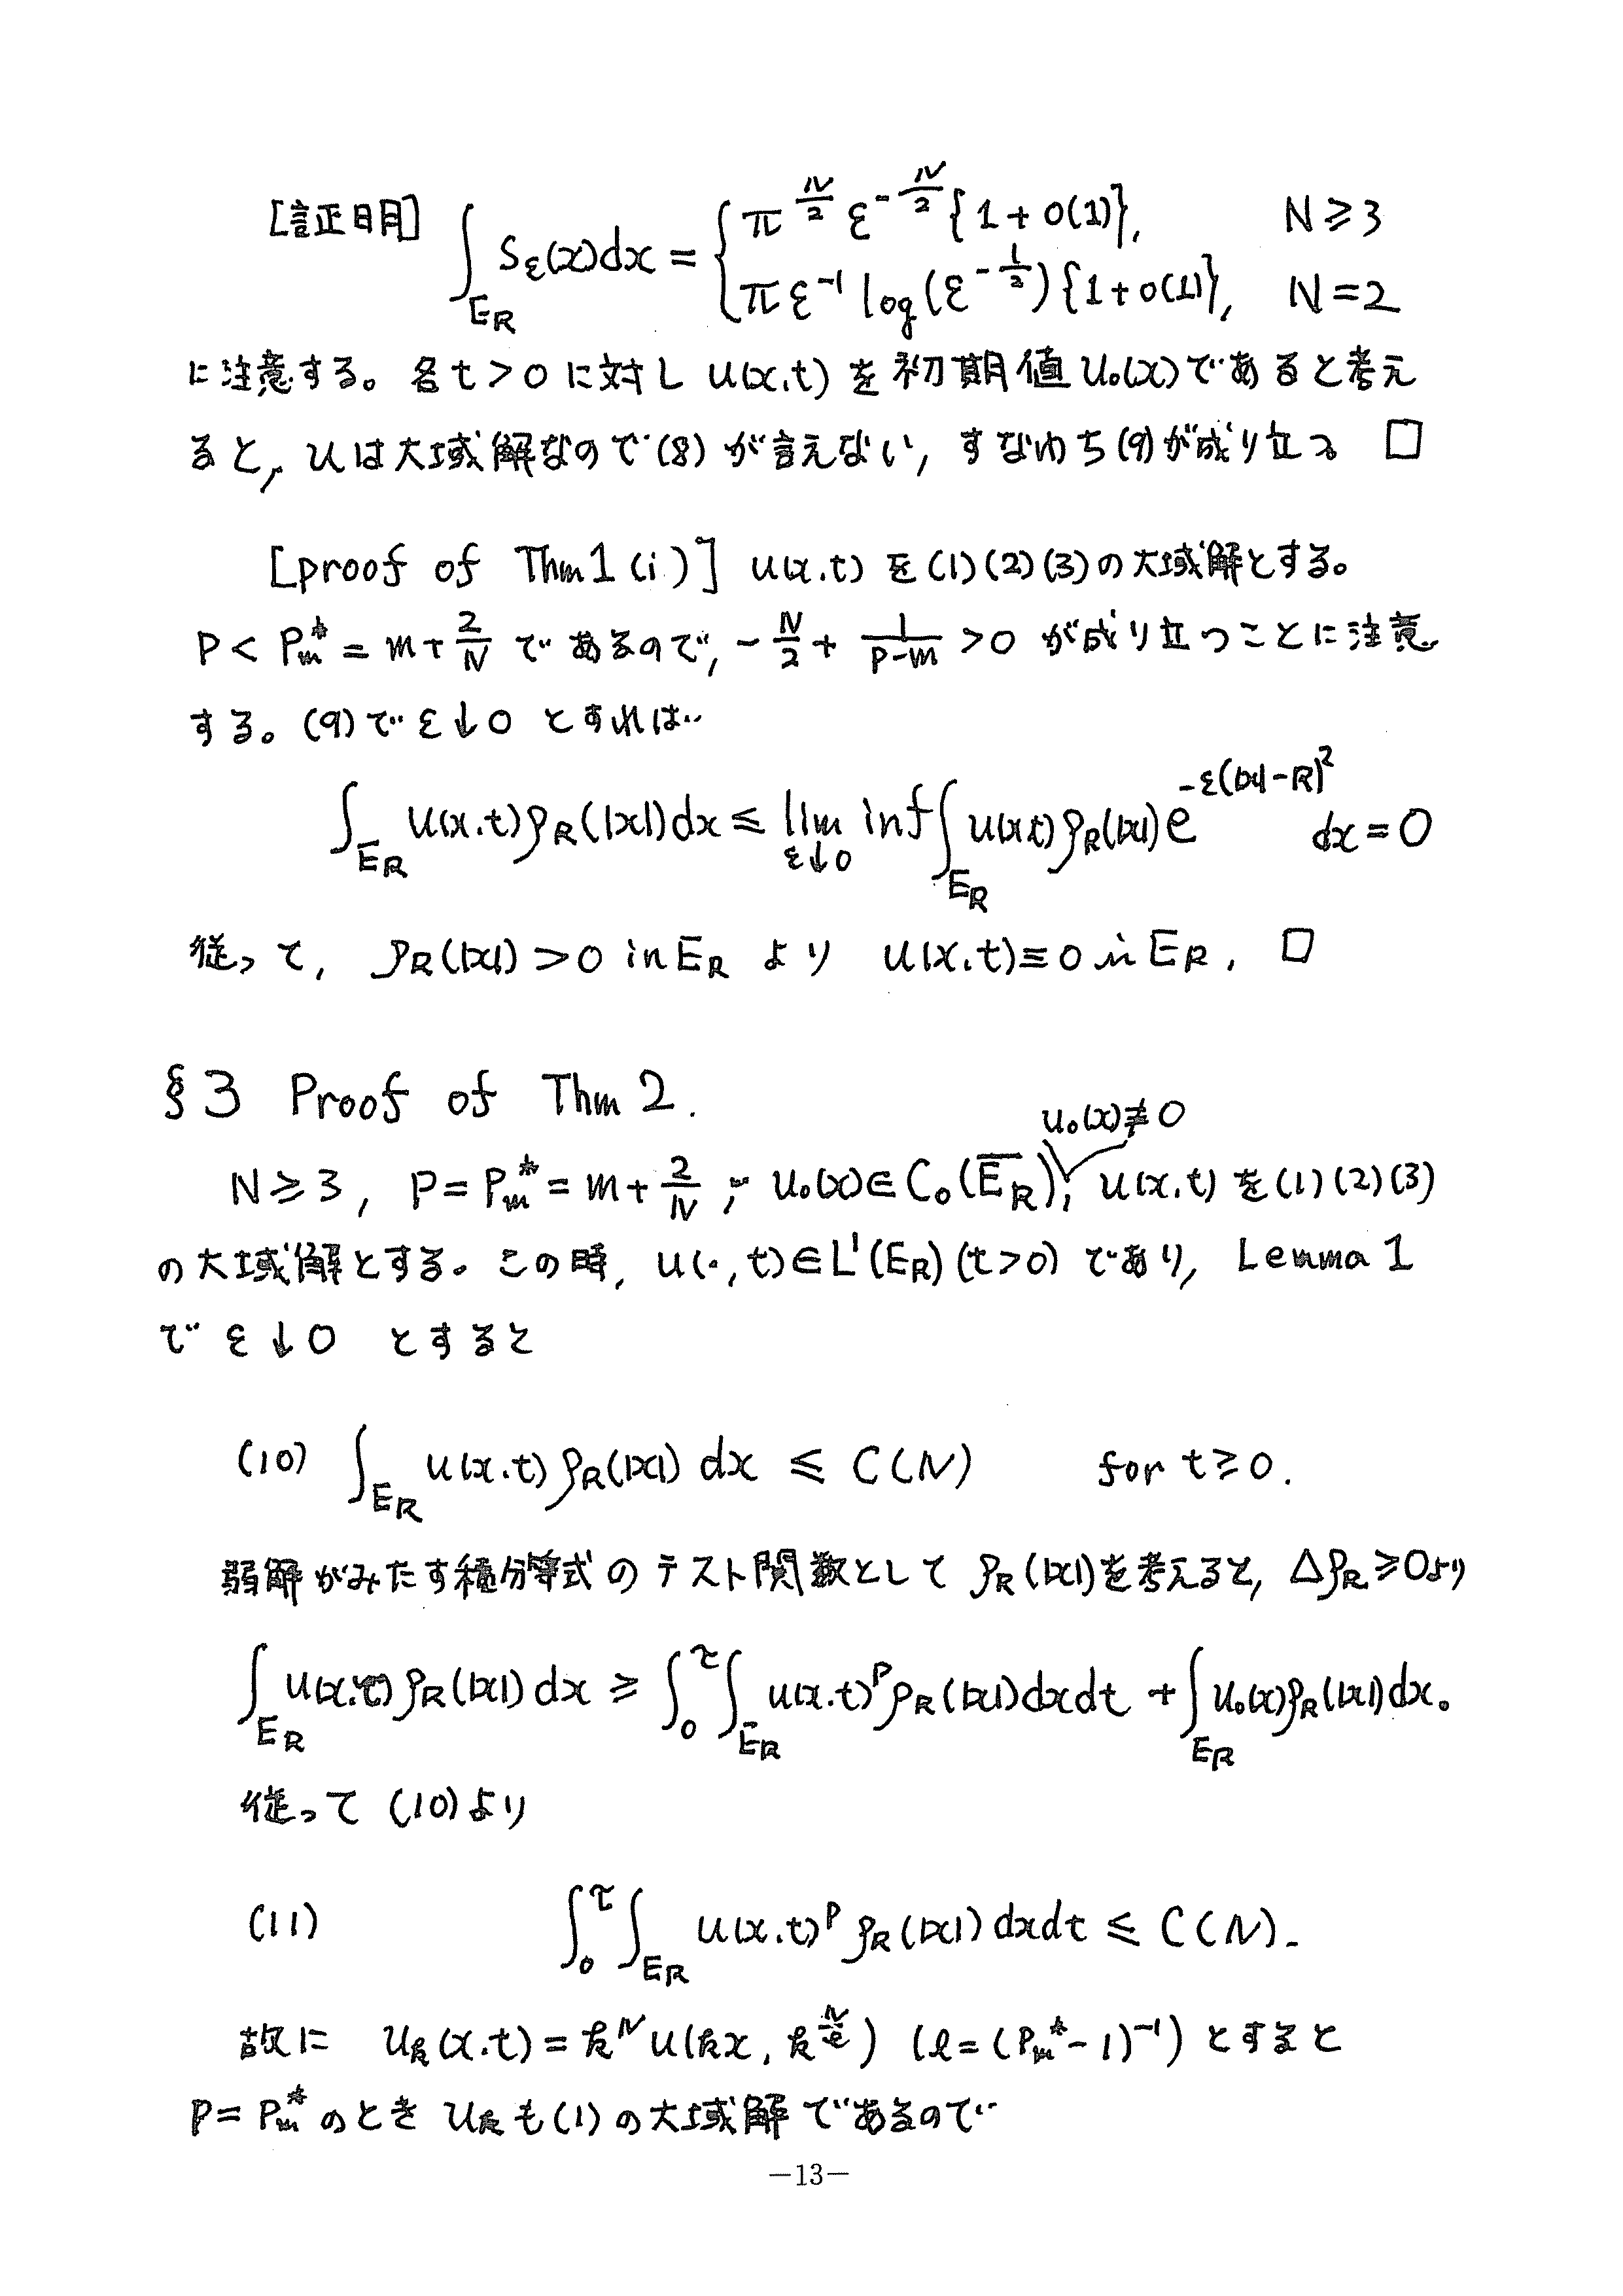 [証明] ∫_{E_R} S_ε(x)dx = { π^{N/2} ε^{-N/2} {1+o(1)}, N≥3
π ε^{-1} log(ε^{-1/2}) {1+o(1)}, N=2
に注意する。各 t>0 に対し u(x.t) を初期値 u₀(x)であると考え
ると, uは大域解なので(8)が言えない, すなわち(9)が成り立つ □
[proof of Thm1 (i)] u(x.t) を(1)(2)(3)の大域解とする。
P < P_m^* = m+2/N であるので, -N/2 + 1/(p-m) >0 が成り立つことに注意
する。(9)で ε↓0 とすれば
∫_{E_R} u(x.t)ρ_R(|x|)dx ≤ lim inf_{ε↓0} ∫_{E_R} u(x.t)ρ_R(|x|)e^{-ε(|x|-R)^2} dx = 0
従って, ρ_R(|x|) >0 in E_R より u(x.t)≡0 in E_R, □
§3 Proof of Thm 2.
u₀(x)≢0
N≥3, P=P_m^*=m+2/N ; u₀(x)∈C₀(\overline{E_R}), u(x.t) を(1)(2)(3)
の大域解とする。この時, u(・,t)∈L¹(E_R) (t>0) であり, Lemma 1
で ε↓0 とすると
(10) ∫_{E_R} u(x.t)ρ_R(|x|) dx ≤ C(N) for t≥0.
弱解がみたす積分等式のテスト関数として ρ_R(|x|)を考えると, Δρ_R≥0より
∫_{E_R} u(x.τ)ρ_R(|x|)dx ≥ ∫_0^τ∫_{E_R} u(x.t)^pρ_R(|x|)dxdt + ∫_{E_R} u₀(x)ρ_R(|x|)dx。
従って (10)より
(11) ∫_0^τ∫_{E_R} u(x.t)^p ρ_R(|x|) dxdt ≤ C(N).
故に u_k(x.t) = k^N u(kx, k^{N/ℓ}) (ℓ=(P_m^*-1)^{-1}) とすると
P=P_m^* のとき u_k も(1)の大域解であるので
—13—